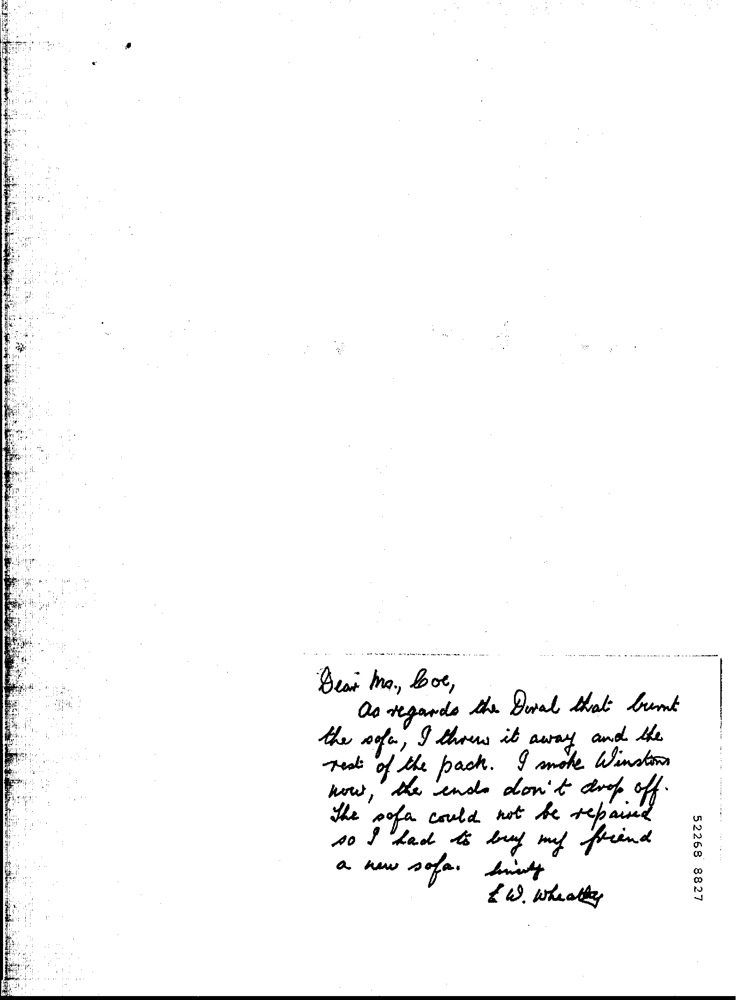 Dear Ms., Coe,
As regards the Doral that burnt
the sofa, I threw it away and the
rest of the pack. I smoke Winstons
now, the ends don't drop off.
The sofa could not be repaired
so I had to buy my friend
a new sofa. Sincerely
E W. Wheatley
52268 8827